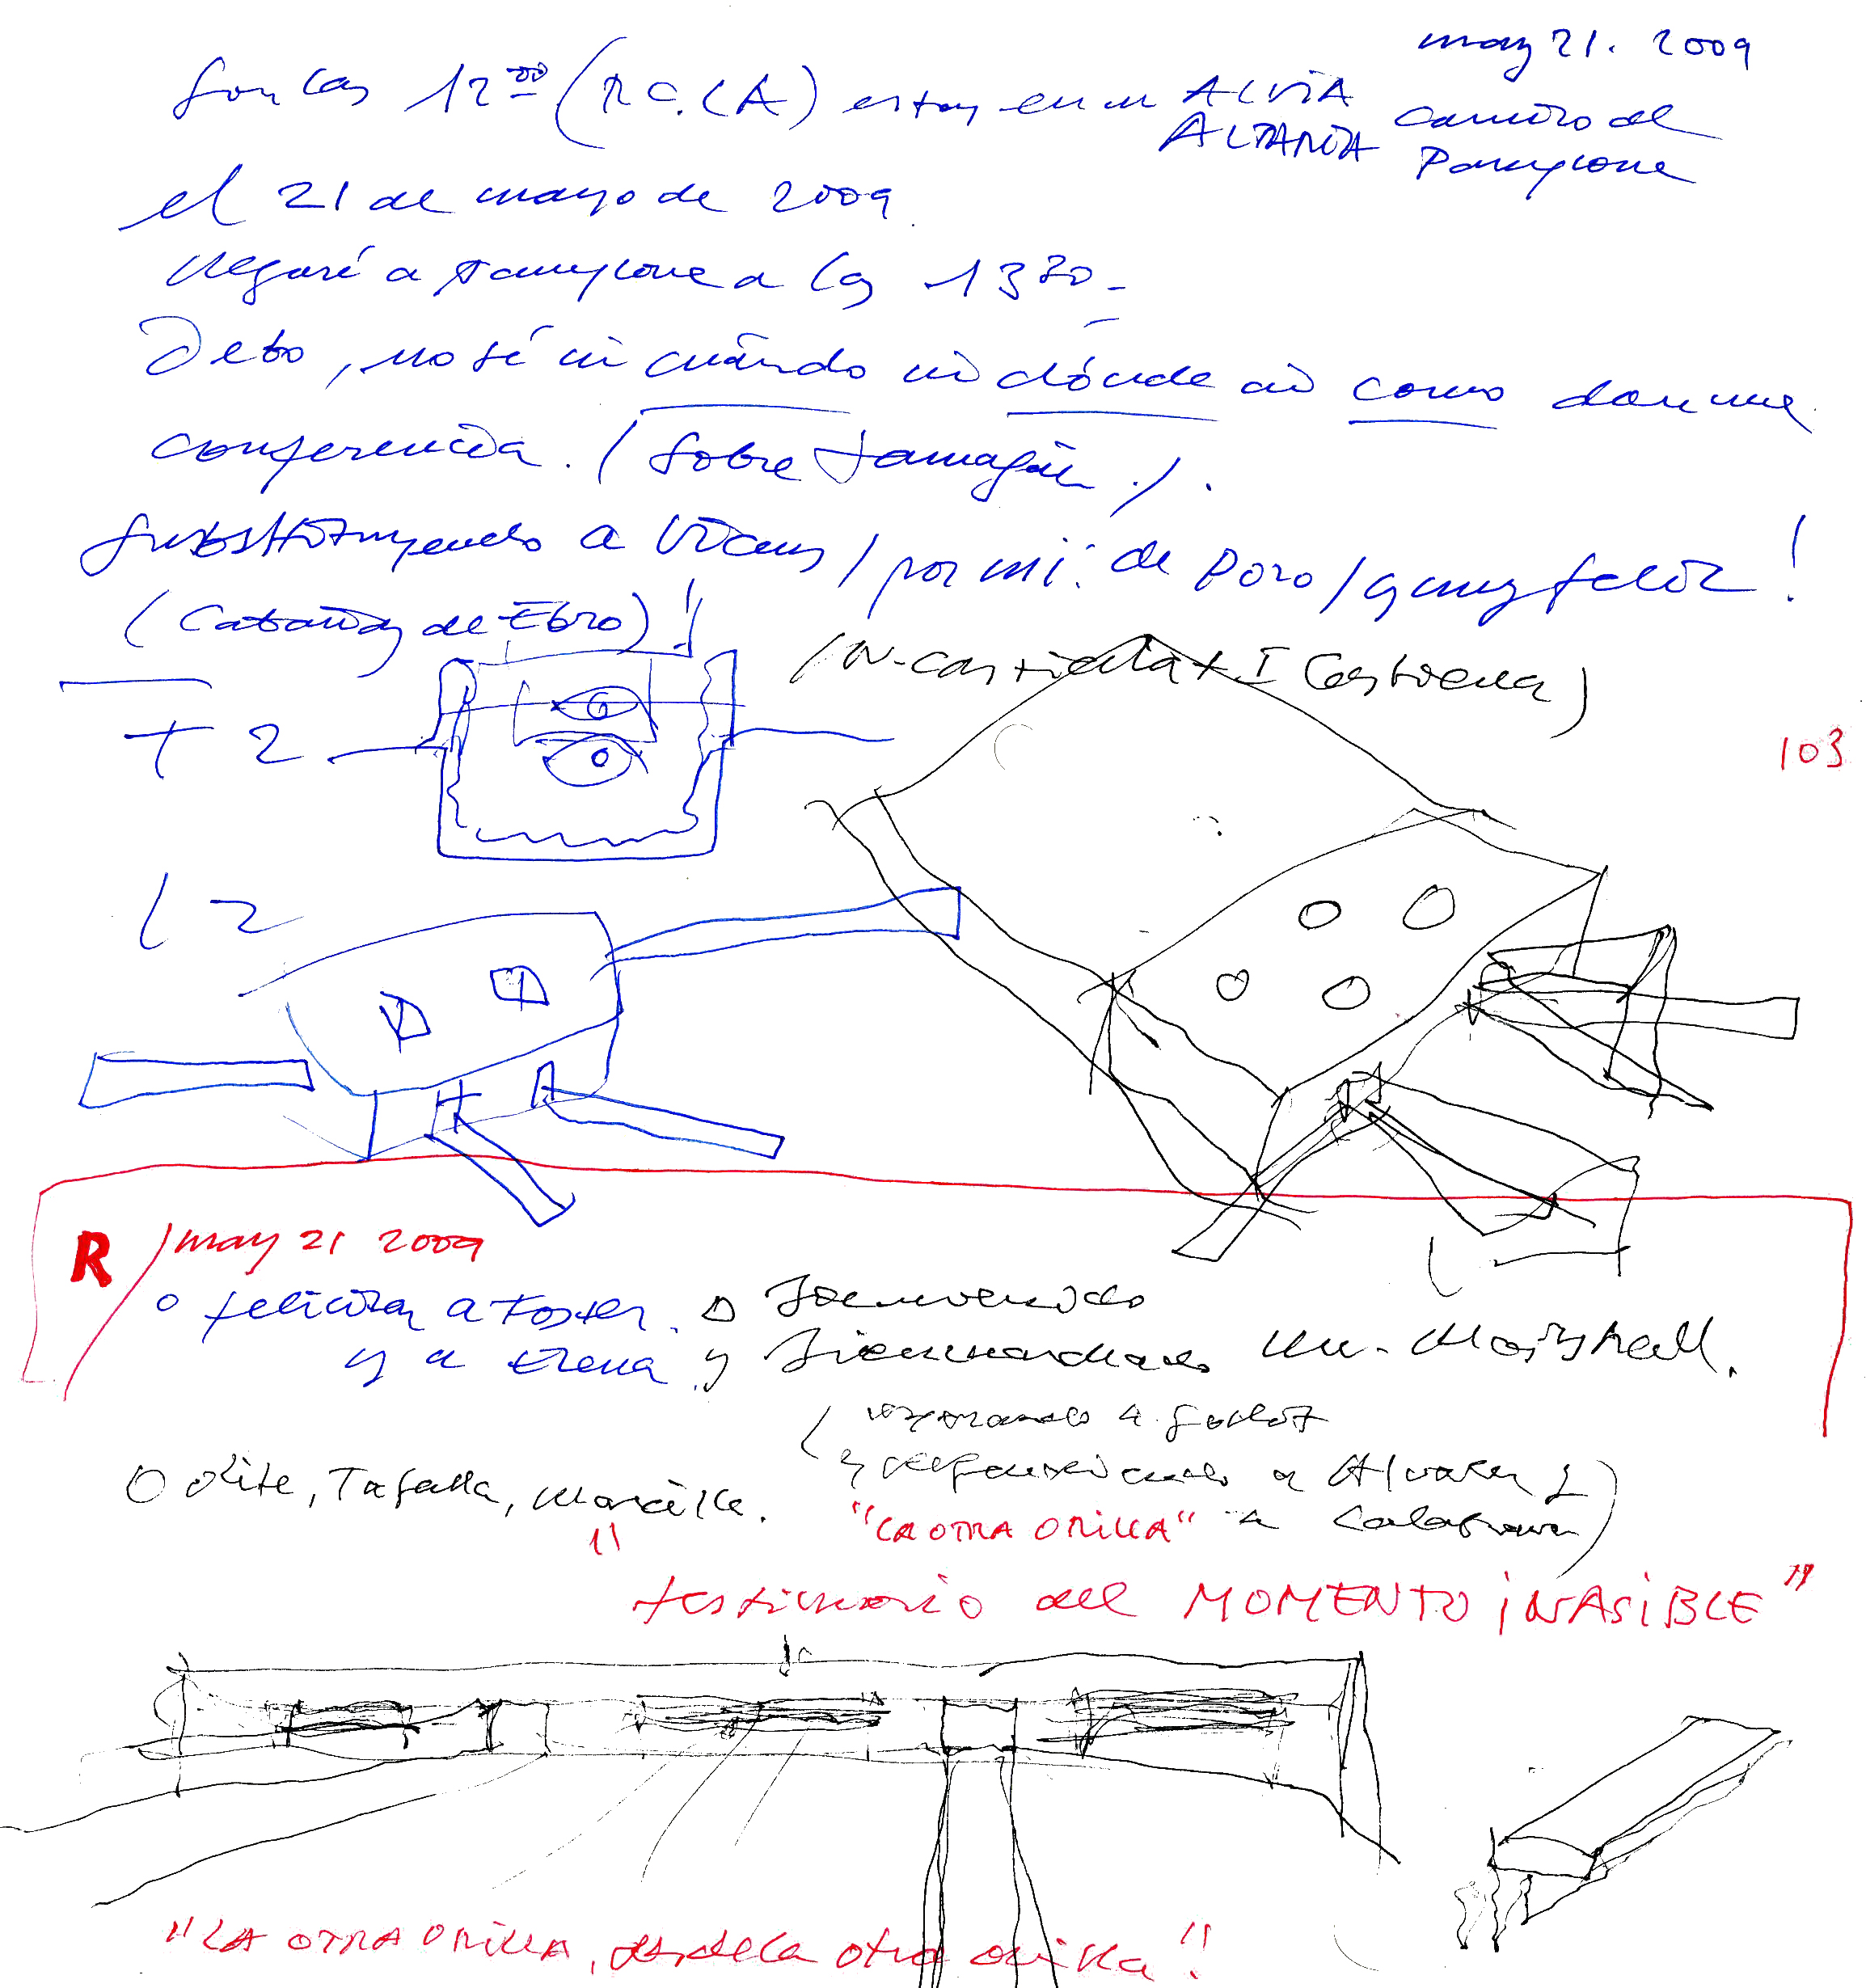 may 21. 2009
Son las 12 00 (R.C.(A) estoy en un ALVIA camino de
ALTARIA Pamplona
el 21 de mayo de 2009
llegaré a Pamplona a las 13 30
Debo, no sé ni cuándo ni dónde ni como dar una
conferencia. (Sobre
substituyendo a / por mí: de Pozo / y muy feliz!
(Cabañas de Ebro)!
T 2
103
L 2
R / may 21 2009
o felicitar a Foster.
y a Elena.
o Bienvenido
y Bienhallado Mr. Marshall.
(esperando a Godot
y a Alvaro y
a Calatrava)
O Olite, Tafalla, Marcilla.
"LA OTRA ORILLA"
" testimonio del MOMENTO INASIBLE"
"LA OTRA ORILLA, desde la otra orilla"